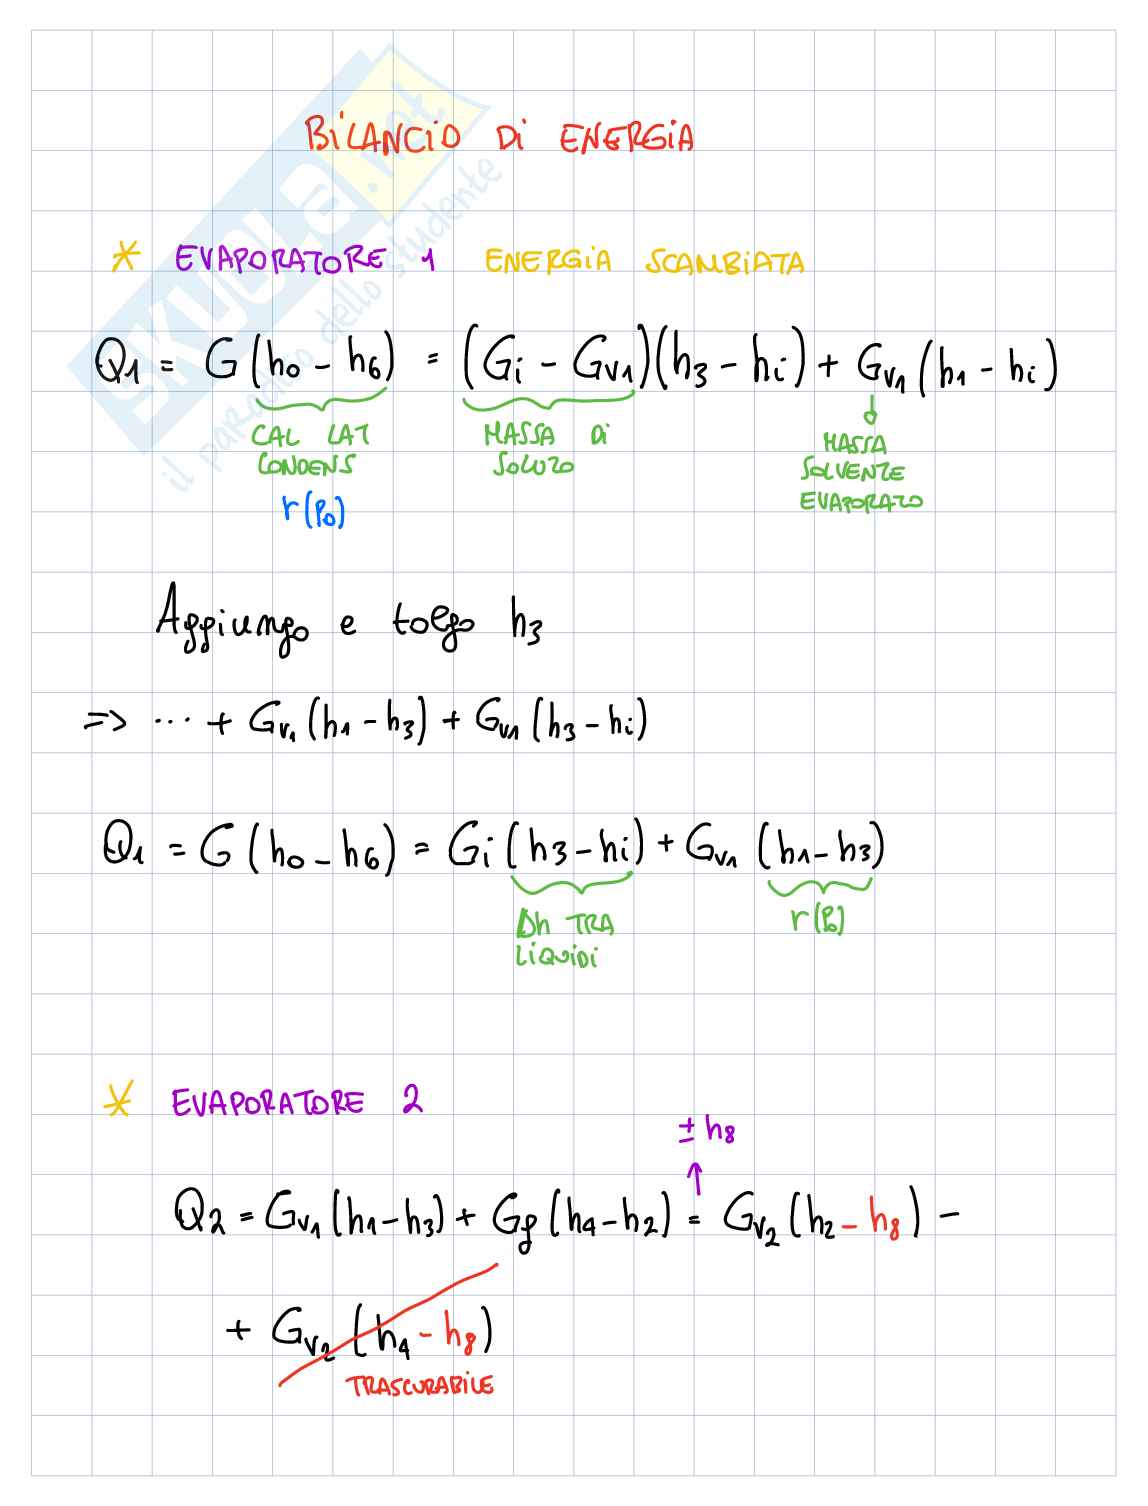 BILANCIO DI ENERGIA
* EVAPORATORE 1 ENERGIA SCAMBIATA
Q1 = G(h0 - h6) = (Gi - Gv1)(h3 - hi) + Gv1(h1 - hi)
CAL LAT CONDENS
r(P0)
MASSA DI SOLUTO
MASSA SOLVENTE EVAPORATO
Aggiungo e tolgo h3
=> ... + Gv1(h1 - h3) + Gv1(h3 - hi)
Q1 = G(h0 - h6) = Gi(h3 - hi) + Gv1(h1 - h3)
Δh TRA LIQUIDI
r(P0)
* EVAPORATORE 2
± h8
↑
Q2 = Gv1(h1 - h3) + Gf(h4 - h2) = Gv2(h2 - h8) -
+ Gv2(h4 - h8)
TRASCURABILE
SKUOLA.net
il paradiso dello studente